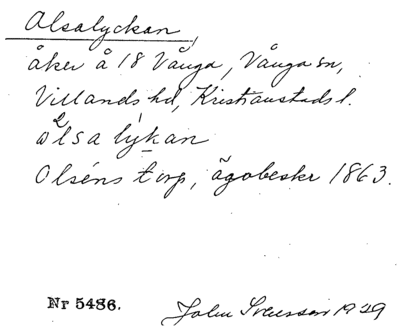 Alsalyckan,
åker å 18 Vånga, Vånga sn,
Villands hd, Kristianstads l.
lýkan
Olséns torp, ägobeskr 1863.
Nr 5486.
John Svensson 1929